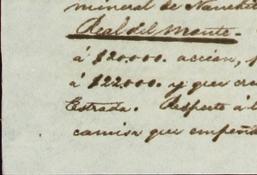 mineral de
Real del Monte.-
á $20.000. accion,
á $22.000. y que cre
Estrada. Respecto á l
camisa que empeñ